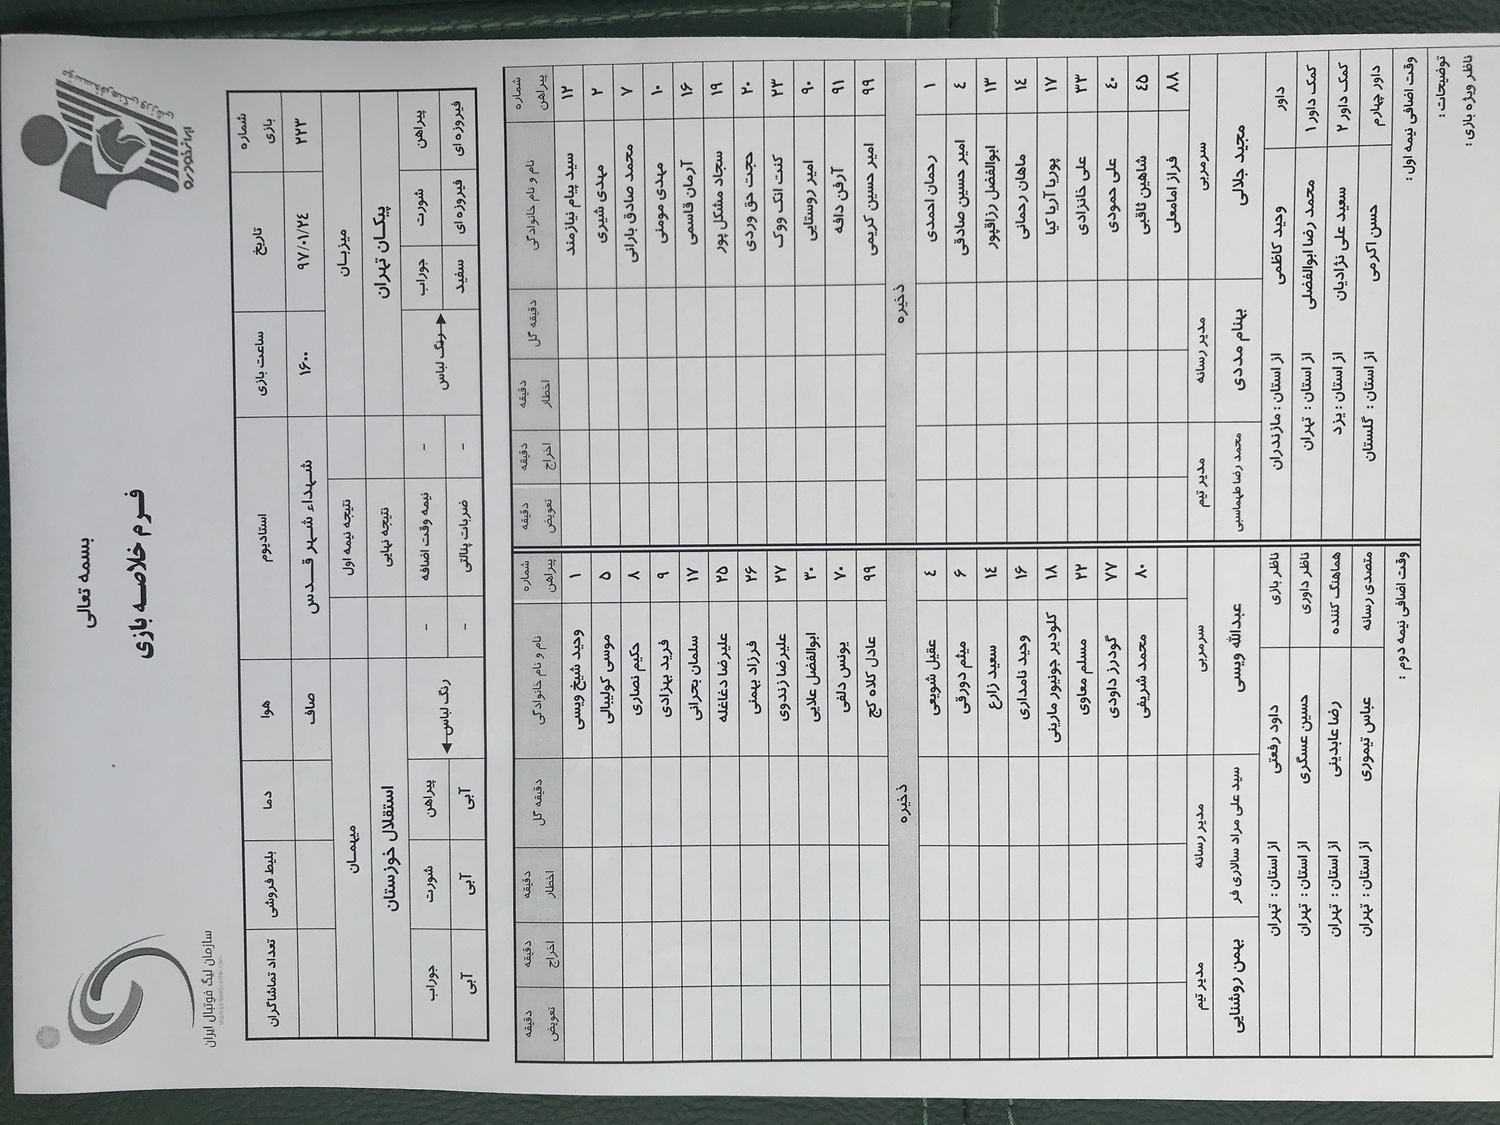 بسمه تعالی
فرم خلاصه بازی
موسسه فرهنگی ورزشی
ایران خودرو
سازمان لیگ فوتبال ایران
شماره بازی	تاریخ	ساعت بازی	استادیوم	هوا	دما	بلیط فروشی	تعداد تماشاگران
۲۲۳	۹۷/۰۱/۲۴	۱۶۰۰	شهداء شهر قدس	صاف
میزبان	نتیجه نیمه اول	میهمان
پیکان تهران	نتیجه نهایی	استقلال خوزستان
پیراهن	شورت	جوراب	رنگ لباس	-	نیمه وقت اضافه	-	رنگ لباس	پیراهن	شورت	جوراب
فیروزه ای	فیروزه ای	سفید	-	ضربات پنالتی	-	آبی	آبی	آبی
شماره پیراهن	نام و نام خانوادگی	دقیقه گل	دقیقه اخطار	دقیقه اخراج	دقیقه تعویض	شماره پیراهن	نام و نام خانوادگی	دقیقه گل	دقیقه اخطار	دقیقه اخراج	دقیقه تعویض
۱۲	سید پیام نیازمند	۱	وحید شیخ ویسی
۲	مهدی شیری	۵	موسی کولیبالی
۷	محمد صادق بارانی	۸	حکیم نصاری
۱۰	مهدی مومنی	۹	فرید بهزادی
۱۶	آرمان قاسمی	۱۷	سلمان بحرانی
۱۹	سجاد مشکل پور	۲۵	علیرضا دغاغله
۲۰	حجت حق وردی	۲۶	فرزاد بهمنی
۲۳	کنت انک ووک	۲۷	علیرضا زندوی
۹۰	امیر روستایی	۳۰	ابوالفضل علایی
۹۱	آرفن دافه	۷۰	یونس دلفی
۹۹	امیر حسین کریمی	۹۹	عادل کلاه کج
ذخیره	ذخیره
۱	رحمان احمدی	۴	عقیل شویعی
۴	امیر حسین صادقی	۶	میثم دورقی
۱۳	ابوالفضل رزاقپور	۱۴	سعید زارع
۱۴	ماهان رحمانی	۱۶	وحید نامداری
۱۷	پوریا آریا کیا	۱۸	کلودیر جونیور مارینی
۳۳	علی خانزادی	۲۲	مسلم معاوی
۴۰	علی حمودی	۷۷	گودرز داودی
۴۵	شاهین ثاقبی	۸۰	محمد شریفی
۸۸	فراز امامعلی
سرمربی	مدیر رسانه	مدیر تیم	سرمربی	مدیر رسانه	مدیر تیم
مجید جلالی	بهنام مددی	محمد رضا طهماسبی	عبدالله ویسی	سید علی مراد سالاری فر	بهمن روشنایی
داور	وحید کاظمی	از استان : مازندران	ناظر بازی	داود رفعتی	از استان : تهران
کمک داور ۱	محمد رضا ابوالفضلی	از استان : تهران	ناظر داوری	حسین عسگری	از استان : تهران
کمک داور ۲	سعید علی نژادیان	از استان : یزد	هماهنگ کننده	رضا عابدینی	از استان : تهران
داور چهارم	حسن اکرمی	از استان : گلستان	متصدی رسانه	عباس تیموری	از استان : تهران
وقت اضافی نیمه اول :	وقت اضافی نیمه دوم :
توضیحات :
ناظر ویژه بازی :